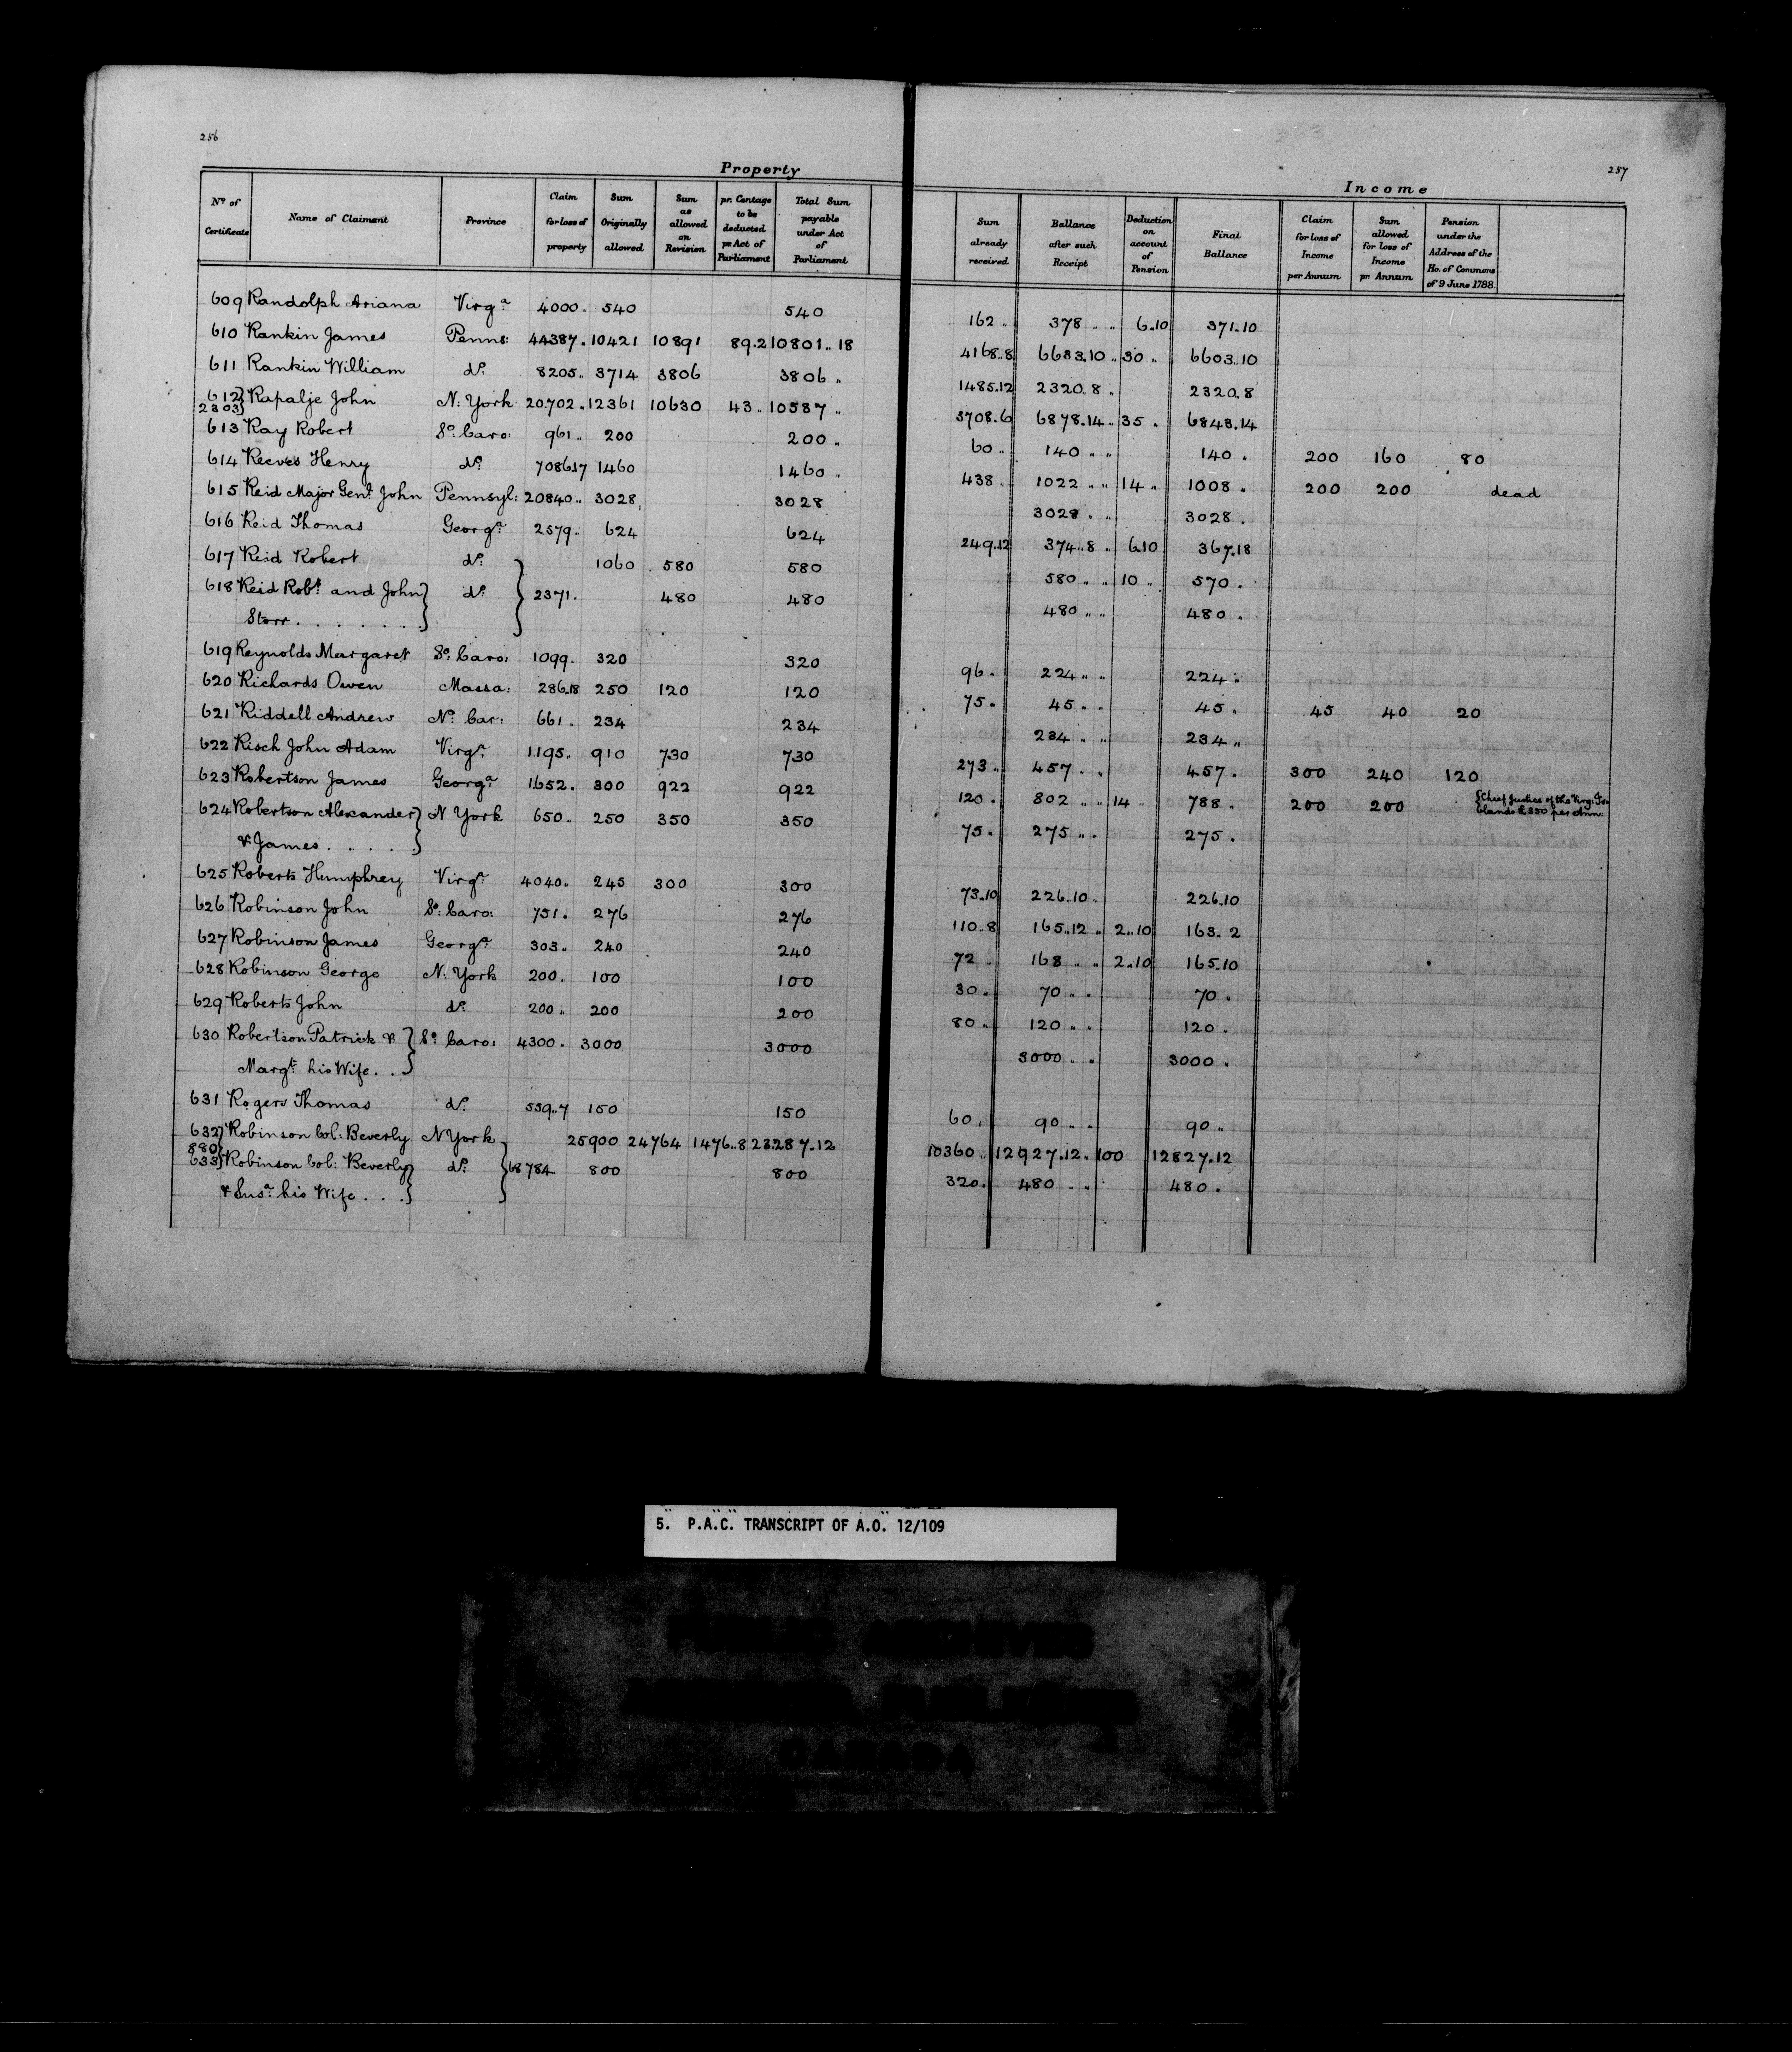 256
257
Property
Income
No of Certificate | Name of Claimant | Province | Claim for loss of property | Sum Originally allowed | Sum as allowed on Revision | pr. Centage to be deducted pr Act of Parliament | Total Sum payable under Act of Parliament | Sum already received | Ballance after such Receipt | Deduction on account of Pension | Final Ballance | Claim for loss of Income per Annum | Sum allowed for loss of Income pr. Annum | Pension under the Address of the Ho. of Commons of 9 June 1788
609 Randolph Ariana Virga 4000 . 540 540 162 .. 378 .. .. 6..10 371.10
610 Rankin James Penns: 44387 . 10421 10891 89.2 10801 .. 18 4168..8 6633.10 .. 30 .. 6603..10
611 Rankin William do 8205 .. 3714 3806 3806 .. 1485.12 2320.8 . 2320.8
612} 2303} Rapalje John N: York 20.702 . 12361 10630 43 .. 10587 .. 3708.6 6878.14 .. 35 . 6843.14
613 Ray Robert So: Caro: 961 .. 200 200 .. 60 .. 140 .. .. 140 . 200 160 80
614 Reeves Henry do 7086.17 1460 1460 . 438 .. 1022 .. .. 14 .. 1008 .. 200 200 dead
615 Reid Major Genl. John Pennsyl: 20840 .. 3028 3028 3028 . .. 3028 .
616 Reid Thomas Georga 2579 .. 624 624 249.12 374..8 .. 6.10 367.18
617 Reid Robert do 1060 580 580 580 .. .. 10 .. 570 .
618 Reid Robt. and John} do } 2371 . 480 480 480 .. .. 480 .
Storr . . . . . . . .}
619 Reynolds Margaret So: Caro: 1099 . 320 320 96 . 224 .. .. 224 ..
620 Richards Owen Massa: 286.18 250 120 120 75 . 45 .. .. 45 . 45 40 20
621 Riddell Andrew No. Car: 661 . 234 234 234 .. .. 234 ..
622 Risch John Adam Virga 1195 .. 910 730 730 273 .. 457 . .. 457 . 300 240 120
623 Robertson James Georga 1652 . 300 922 922 120 . 802 .. .. 14 .. 788 . 200 200 {Chief Justice of the Virg: Is=
lands £350 per Ann:
624 Robertson Alexander} N York 650 .. 250 350 350 75 . 275 .. . 275 .
& James . .. . . .}
625 Roberts Humphrey Virga 4040 . 245 300 300 73.10 226.10 .. 226.10
626 Robinson John So: Caro: 751 . 276 276 110..8 165..12 .. 2..10 163.. 2
627 Robinson James Georga 303 . 240 240 72 168 .. .. 2..10 165.10
628 Robinson George N: York 200 . 100 100 30 . 70 .. . 70 .
629 Roberts John do 200 .. 200 200 80 .. 120 .. . 120 .
630 Robertson Patrick & } So Caro: 4300 . 3000 3000 3000 .. .. 3000 .
Margt. his Wife . . }
631 Rogers Thomas do 539..7 150 150 60 . 90 .. .. 90 ..
632} Robinson Col: Beverly N York 25900 24764 1476..8 23287.12 10360 .. 12927.12 . 100 12827.12
880}
633} Robinson Col: Beverly} do } 68784 800 800 320 . 480 .. .. 480 .
& Susa. his Wife . . .}
5. P.A.C. TRANSCRIPT OF A.O. 12/109